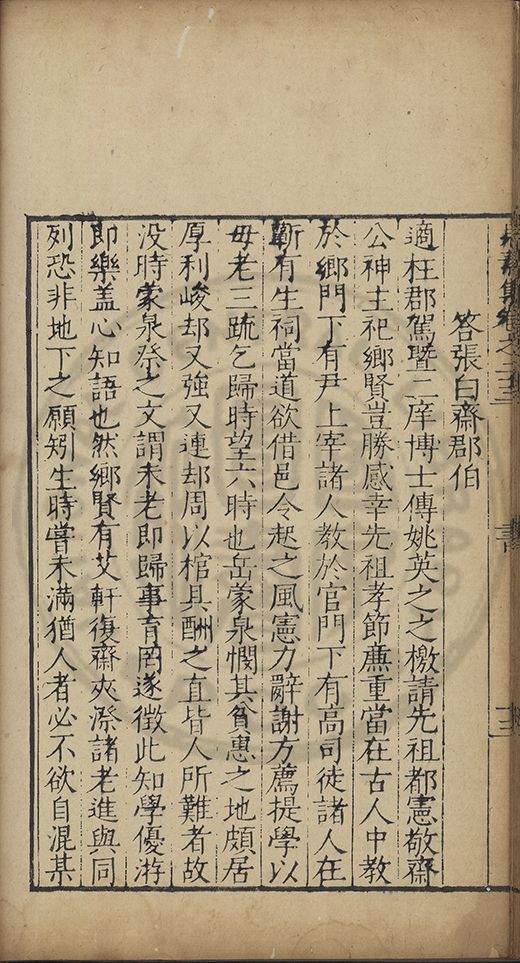 書
答張白齋郡伯
適枉郡駕暨二庠博士傳姚英之之檄請先祖都憲敬齋
公神主祀鄉賢豈勝感幸先祖孝節亷重當在古人中教
於鄉門下有尹上宰諸人教於官門下有高司徒諸人在
有生祠當道欲借邑令起之風憲力辭謝方薦提學以
毋老三䟽乞歸時望六時也岳蒙泉憫其貧惠之地頗居
厚利峻却又強又連却周以棺具酬之直皆人所難者故
没時蒙泉祭之文謂未老即歸事育罔遂徵此知學優游
即樂盖心知語也然鄉賢有艾軒復齋夾漈諸老進與同
列恐非地下之願矧生時嘗未滿猶人者必不欲自混某